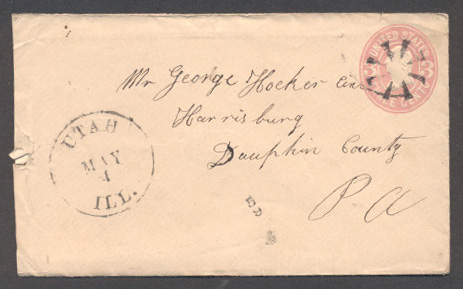 UNITED STATES
Mr George Hocker
Harrisburg
Dauphin County
Pa
UTAH
MAY
1
ILL.